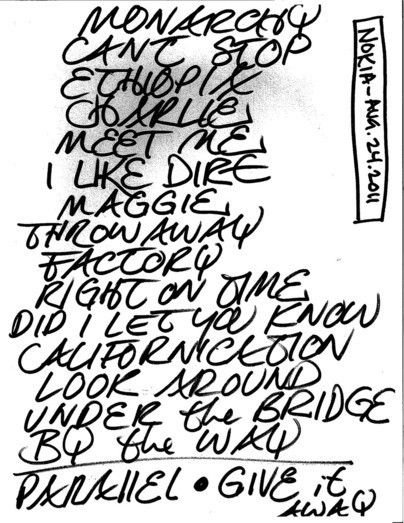 MONARCHY
CAN'T STOP
ETHIOPIA
CHARLIE
MEET ME
I LIKE DIRE
MAGGIE
THROWAWAY
FACTORY
RIGHT ON TIME
DID I LET YOU KNOW
CALIFORNICATION
LOOK AROUND
UNDER the BRIDGE
BY the WAY
PARALLEL • GIVE it
AWAY
NOKIA-AUG.24.2011